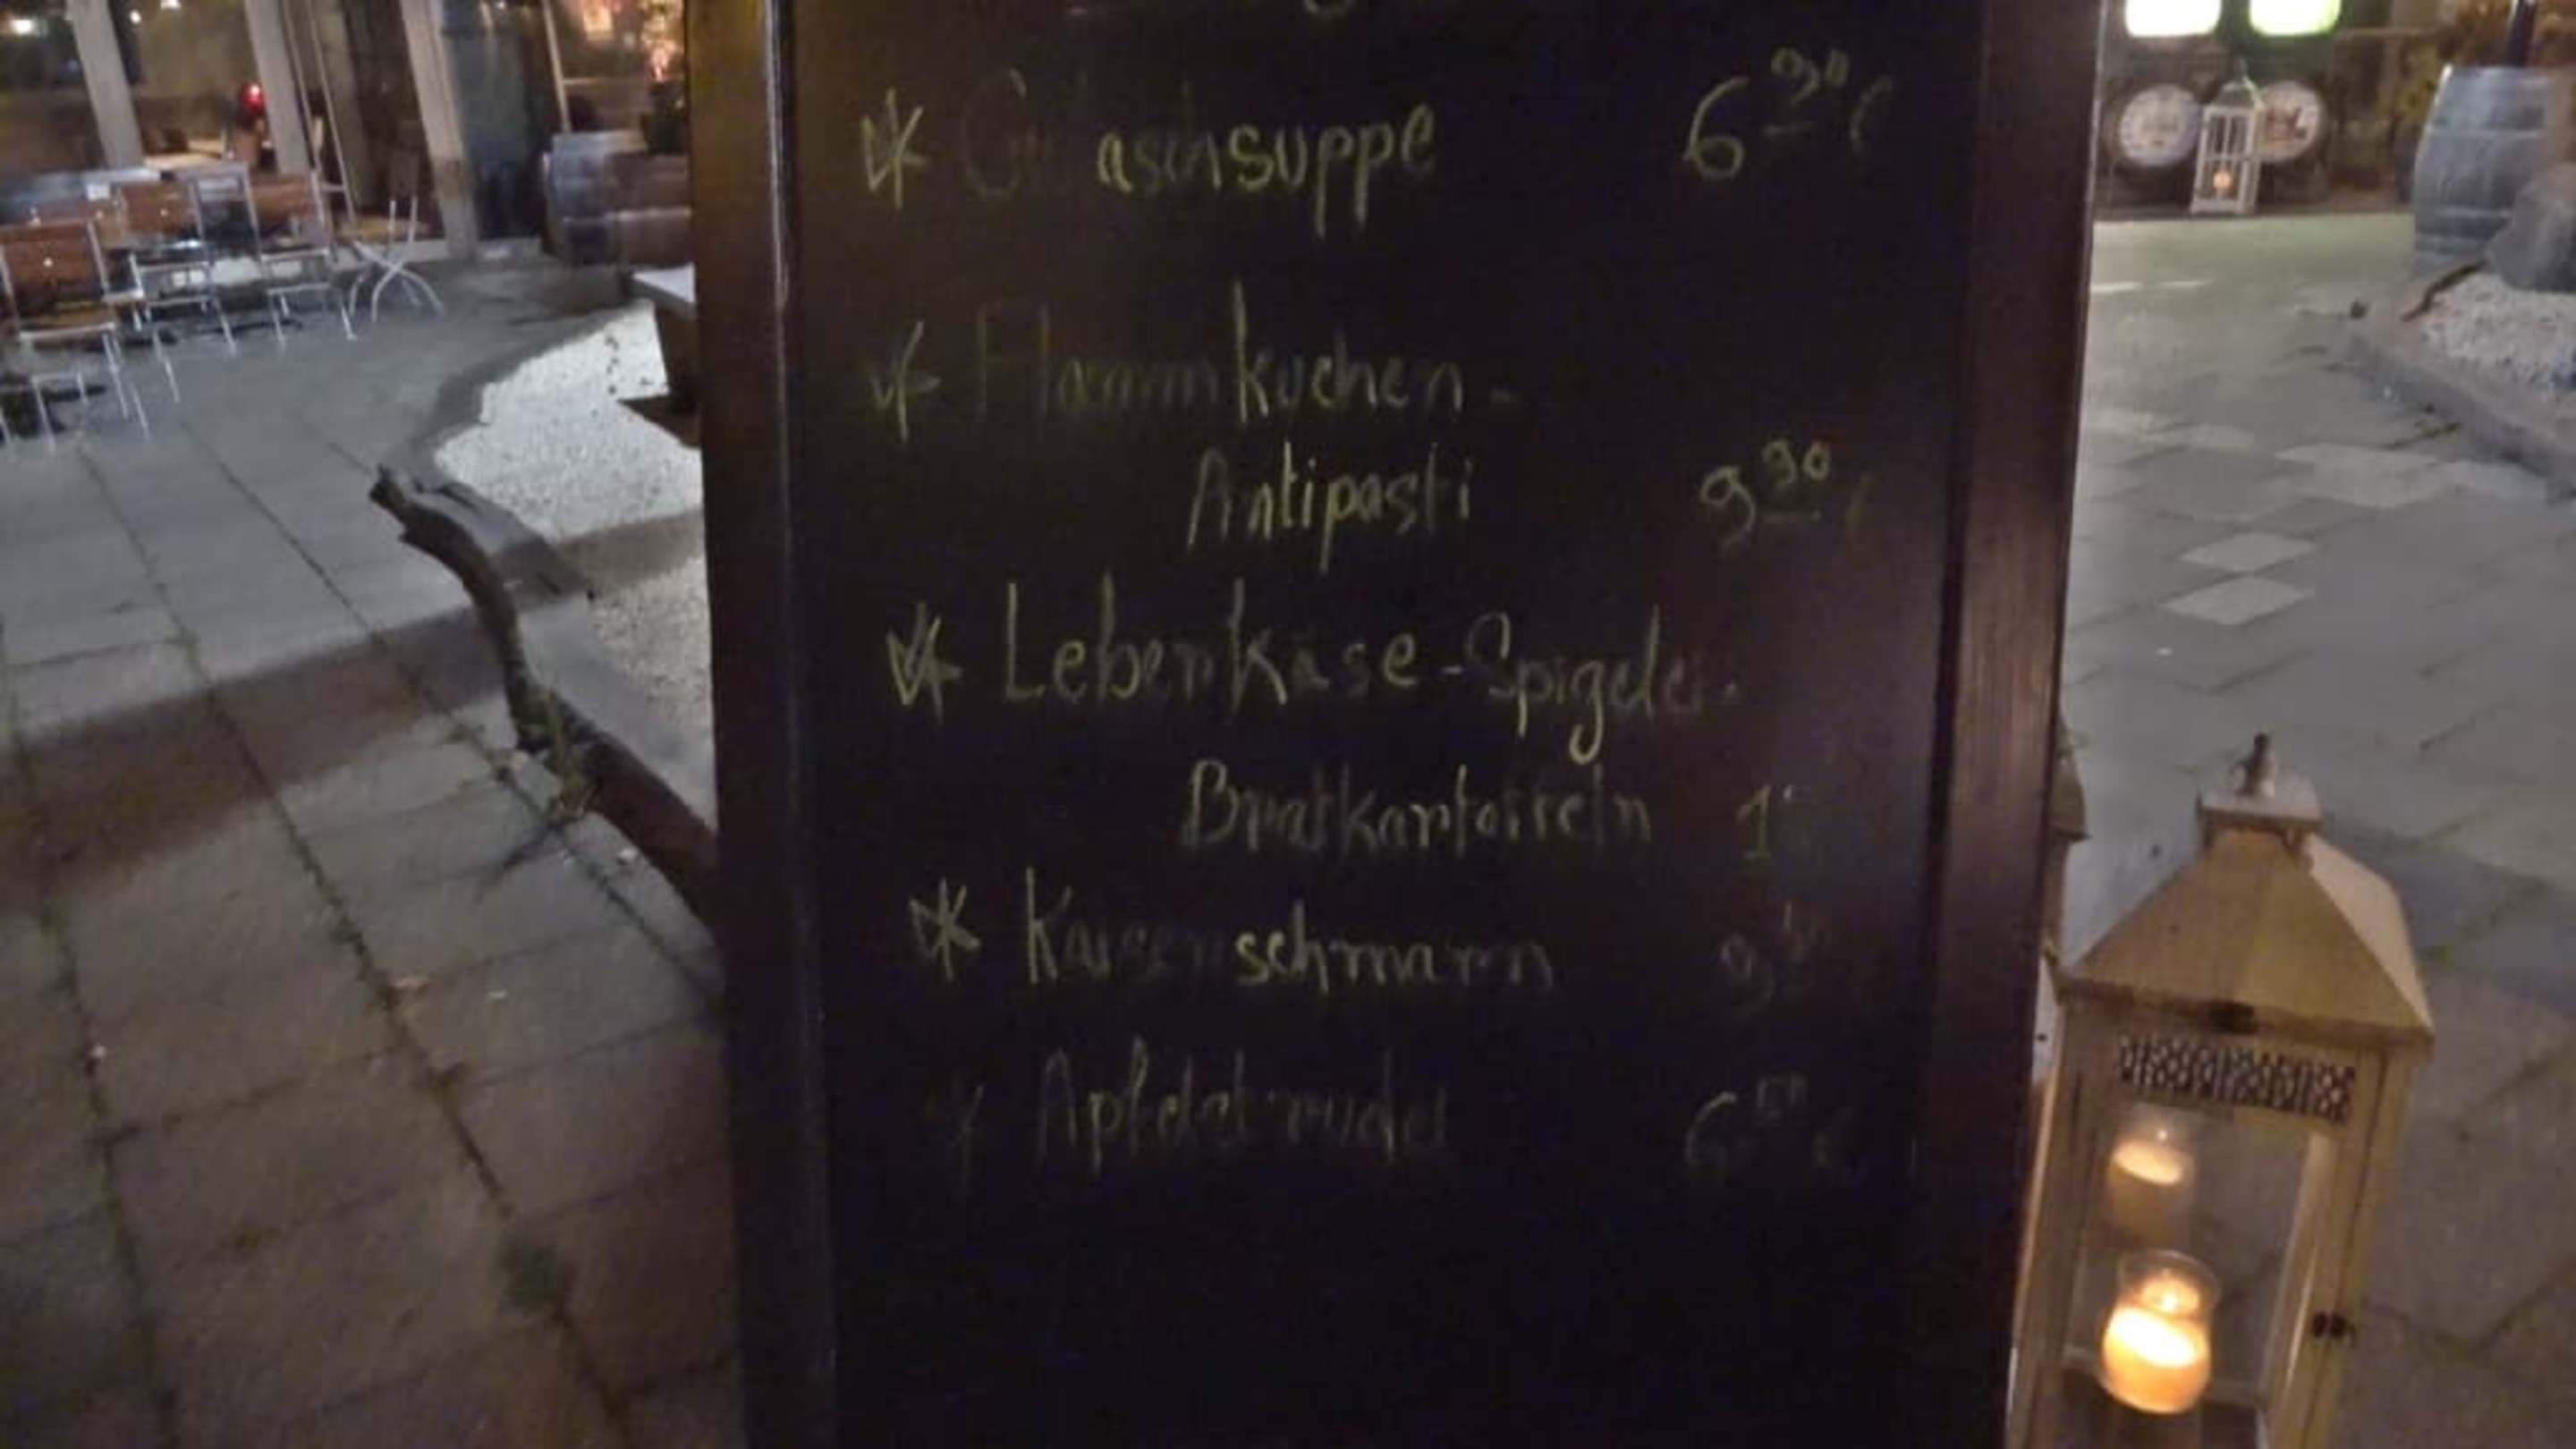 * Gulaschsuppe 6 90 €
* Flammkuchen-
Antipasti 9 90 €
* Leberkäse-Spigelei-
Bratkartoffeln
* Kaiserschmarrn
* Apfelstrudel 6 50 €